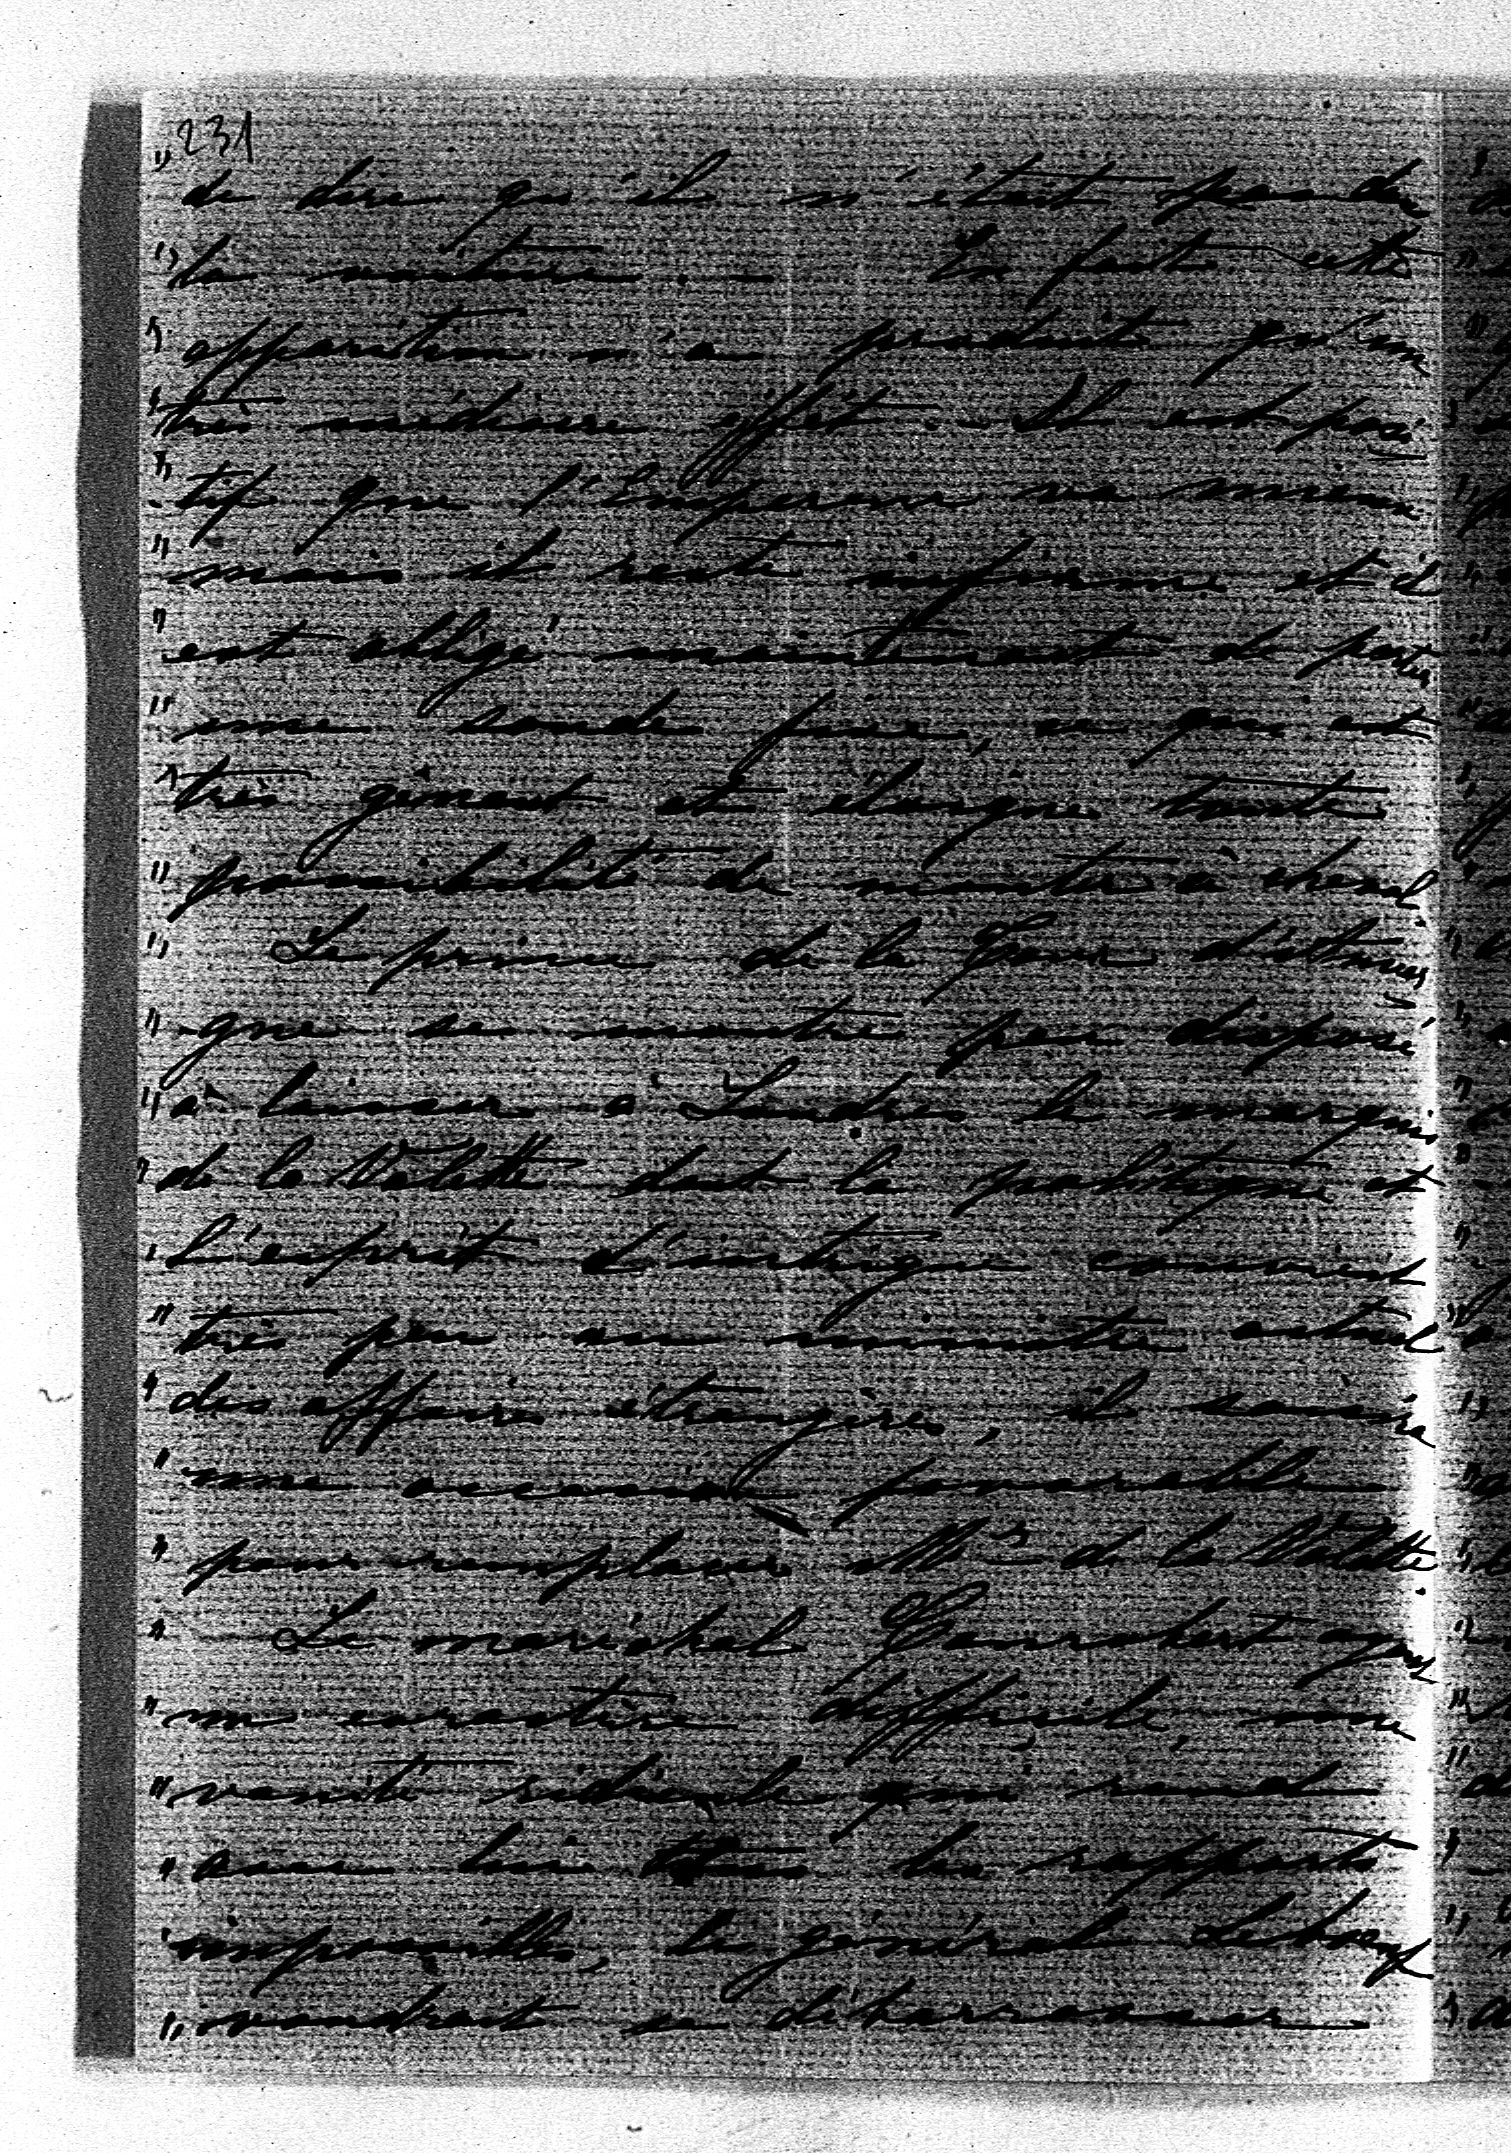 231
" de dire qu'il n'était pas de
" la nature. — En fait cette
" apparition n'a produit qu'un
" très médiocre effet. - Il est posi
" -tif que l'Empereur va mieux
" mais il reste infirme et il
" est obligé maintenant de porter
" une sonde fixe, ce qui est
" très gênant et éloigne toute
" possibilité de monter à cheval.
" Le prince de la Tour d'Auver
" -gne se montre peu disposé
" à laisser à Londres le marquis
" de la Valette dont la politique et
" l'esprit d'intrigue convient
" très peu au ministre actuel
" des affaires étrangères, il saisira
" une occasion favorable
" pour remplacer Mr de la Valette.
" Le maréchal Canrobert ayant
" un caractère difficile, une
" vanité ridicule qui rend
" avec lui tous les rapports
" impossibles, le général Leboeuf
" voudrait se débarrasser